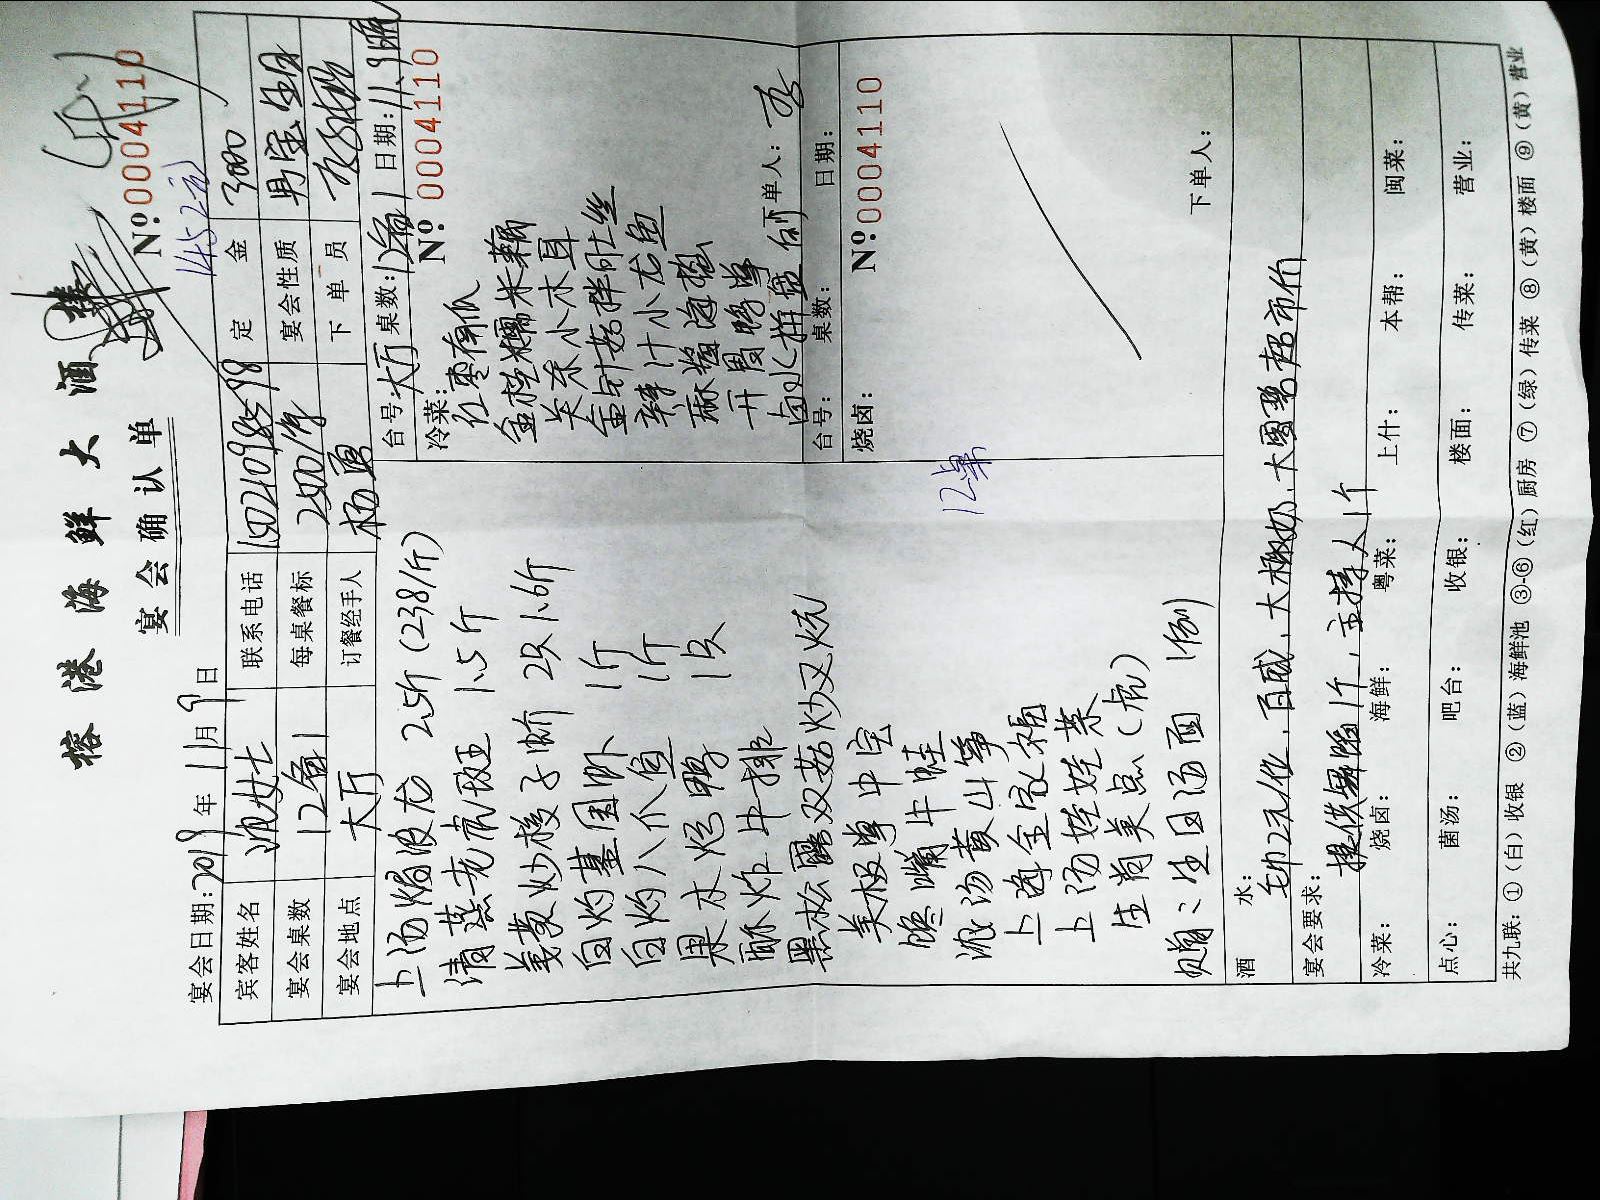 榕港海鲜大酒楼
宴会确认单
№:0004110
宴会日期:2019年11月9日
1452元
宾客姓名 沈女士 联系电话 定金 3000
宴会桌数 12备1 每桌餐标 2800/桌 宴会性质 男宝生日
宴会地点 大厅 订餐经手人 杨勇 下单员
上汤焗波龙 2.5斤(238/斤)
清蒸老虎斑 1.5斤
姜葱炒梭子蟹 2只1.6斤
白灼基围虾 1斤
白灼八爪鱼 1斤
果木烤鸭 1只
酥炸牛排
黑松露双菇炒叉烧
美极掌中宝
馋嘴牛蛙
浓汤黄山笋
上海全家福
上汤娃娃菜
庄尚美点(虎)
赠:生日汤面 1例
12桌
台号:大厅 桌数:12备1 日期:11.9晚
冷菜: №:0004110
红枣南瓜
金桔糯米藕
关东小木耳
金针菇拌肚丝
辣汁小龙鱼
麻酱海蜇
开胃鸭掌
卤水拼盘 例
下单人:
台号: 桌数: 日期:
烧卤: №:0004110
下单人:
酒水: 毛巾2元/位,百威,大椰奶,大雪碧超市价
宴会要求: 提供舞蹈1个,主持人1个
冷菜: 烧卤: 海鲜: 粤菜: 上什: 本帮: 闽菜:
点心: 菌汤: 吧台: 收银: 楼面: 传菜: 营业:
共九联:①(白)收银 ②(蓝)海鲜池 ③-⑥(红)厨房 ⑦(绿)传菜 ⑧(黄)楼面 ⑨(黄)营业